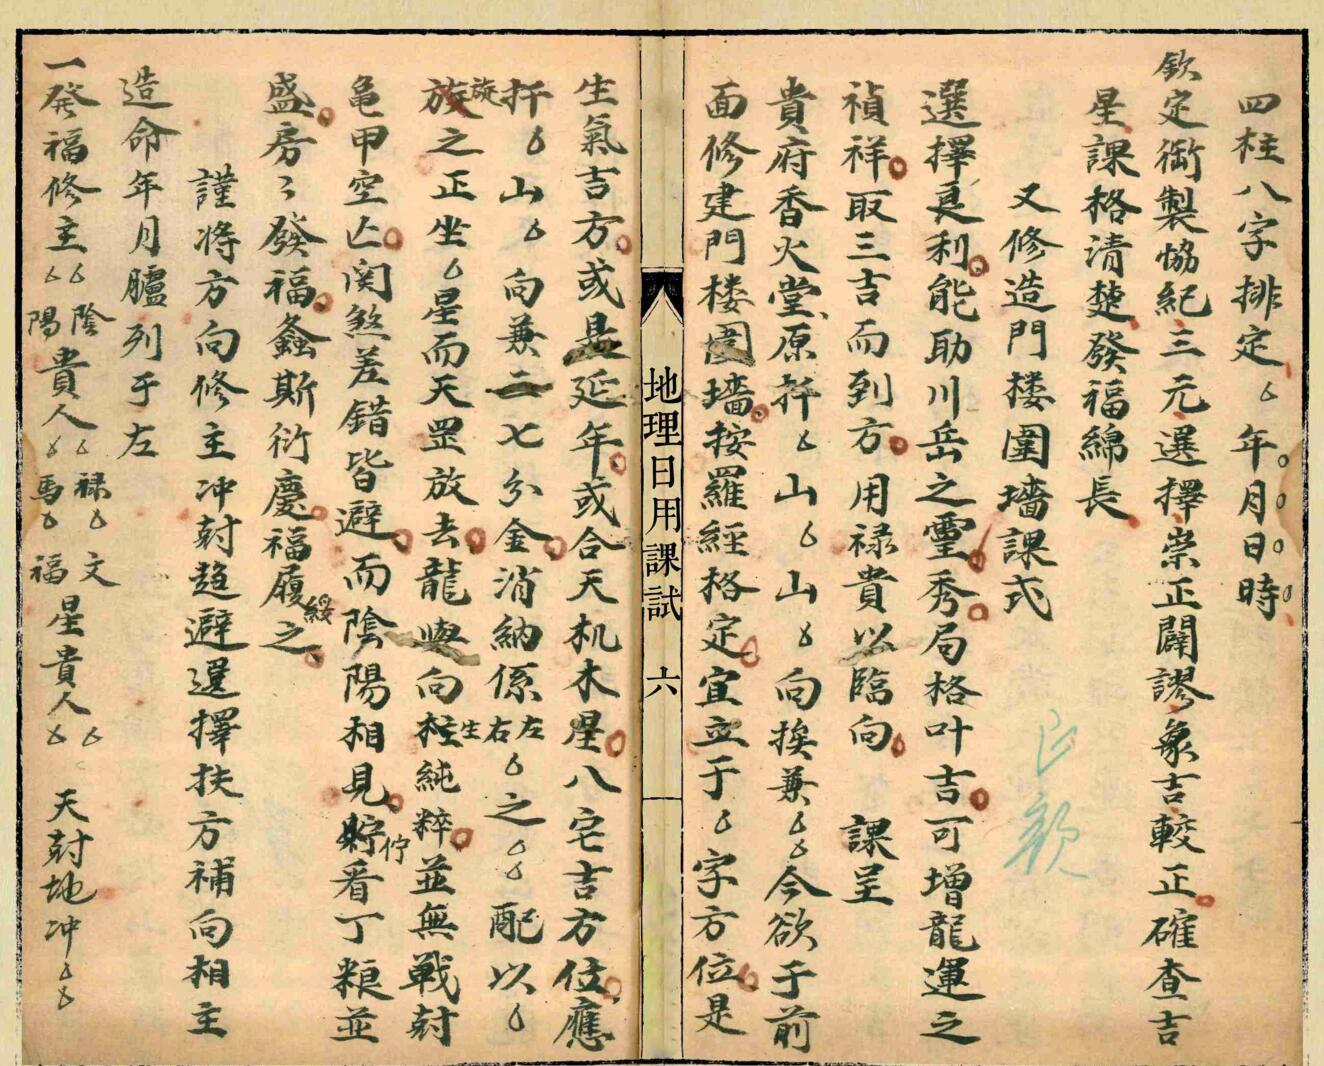 四柱八字排定厶年月日時
欽定御製協紀三元選擇崇正闢謬象吉較正確查吉
星課格清楚發福綿長
又修造門楼圍墻課式
選擇良利能助川岳之霊秀局格叶吉可增龍運之
禎祥取三吉而到方用禄貴以臨向 課呈
貴府香火堂原扦厶山厶山厶向挨兼厶厶今欲于前
面修建門楼圍墻按羅經格定宜立于厶字方位是
地理日用課試 六
生氣吉方或是延年或合天机木星八宅吉方位應
扦厶山厶向兼二七分金消納係左右厶之厶厶配以厶
族旋之正坐厶星而天罡放去龍與向柱生純粹並無戦尅
亀甲空亡関煞差錯皆避而陰陽相見貯佇看丁粮並
盛房〻發福螽斯衍慶福履綏之
謹将方向修主冲尅趋避選擇扶方補向相主
造命年月臚列于左
一發福修主厶厶陰陽貴人厶厶禄馬厶厶文福星貴人厶厶 天尅地冲厶厶